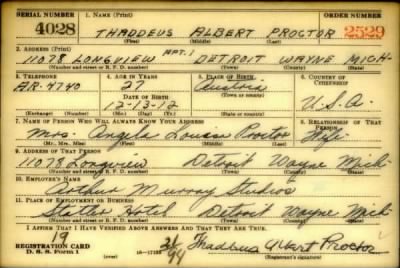 SERIAL NUMBER 1. NAME (Print) ORDER NUMBER
4028 THADDEUS ALBERT PROCTOR 2529
(First) (Middle) (Last)
2. ADDRESS (Print)
11078 LONGVIEW APT. 1 DETROIT WAYNE MICH.
(Number and street or R. F. D. number) (Town) (County) (State)
3. TELEPHONE 4. AGE IN YEARS 5. PLACE OF BIRTH 6. COUNTRY OF CITIZENSHIP
AR. 4740 27 Austria
DATE OF BIRTH (Town or county)
12-13-12 U.S.A.
(Exchange) (Number) (Mo.) (Day) (Yr.) (State or country)
7. NAME OF PERSON WHO WILL ALWAYS KNOW YOUR ADDRESS 8. RELATIONSHIP OF THAT PERSON
Mrs. Angela Louise Proctor Wife
(Mr., Mrs., Miss) (First) (Middle) (Last)
9. ADDRESS OF THAT PERSON
11078 Longview Detroit Wayne Mich
(Number and street or R. F. D. number) (Town) (County) (State)
10. EMPLOYER'S NAME
Arthur Murray Studios
11. PLACE OF EMPLOYMENT OR BUSINESS
Statler Hotel Detroit Wayne Mich
(Number and street or R. F. D. number) (Town) (County) (State)
I AFFIRM THAT I HAVE VERIFIED ABOVE ANSWERS AND THAT THEY ARE TRUE.
19
REGISTRATION CARD
D. S. S. Form 1
Thaddeus Albert Proctor
(Registrant's signature)